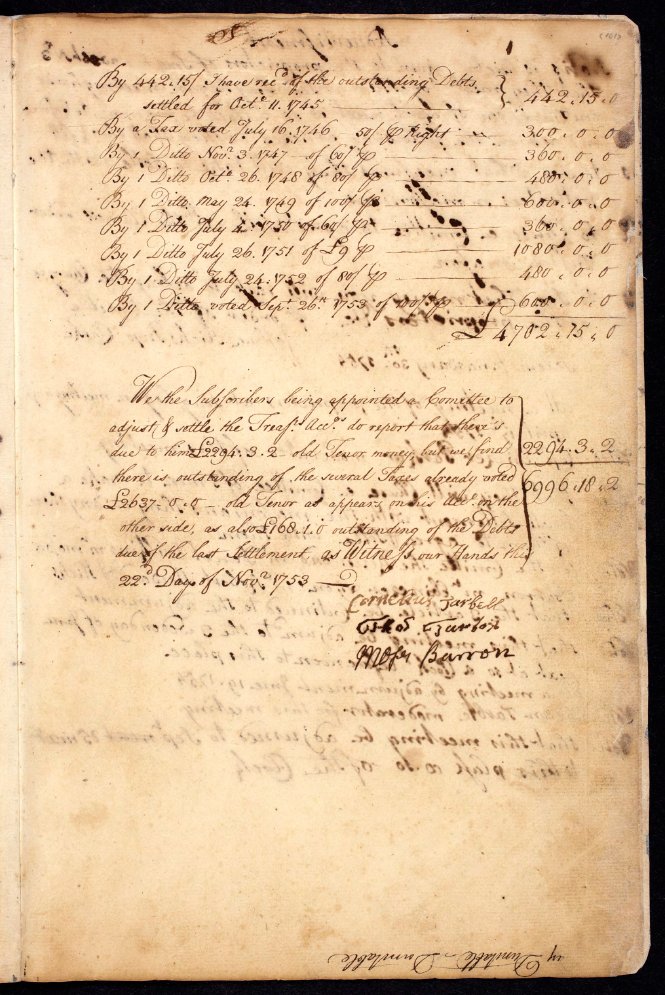 By 442.15/ I have rec.d of the outstanding Debts
settled for Oct.r 11. 1745 — 442.15.0
By a Tax voted July 16. 1746 50/ ⅌ Right — 300.0.0
By 1 Ditto Nov.r 3. 1747 — of 60/ ⅌ — 360.0.0
By 1 Ditto Oct.r 26. 1748 of 80/ ⅌ — 480.0.0
By 1 Ditto May 24. 1749 of 100/ ⅌ — 600.0.0
By 1 Ditto July 4. 1750 of 60/ ⅌ — 360.0.0
By 1 Ditto July 26. 1751 of £9 ⅌ — 1080.0.0
By 1 Ditto July 24. 1752 of 80/ ⅌ — 480.0.0
By 1 Ditto voted Sep.t 26.th 1753 of 100/ ⅌ — 600.0.0
£4702.15.0
We the Subscribers being appointed a Comittee to
adjust & settle the Treas.rs Acc.os do report that there is
due to him £2294.3.2 — old Tenor money, but we find 2294.3.2
there is outstanding of the several Taxes already voted 6996.18.2
£2637.0.0 — old Tenor as appears on his Acc.t on the
other side, as also £168.1.0 outstanding of the Debts
due of the last Settlement, as Witness our Hands this
22.d Day of Nov.r 1753
Cornelius Tarbell
Tho.s Tarbox
Moses Barron
Dunstable Dunstable